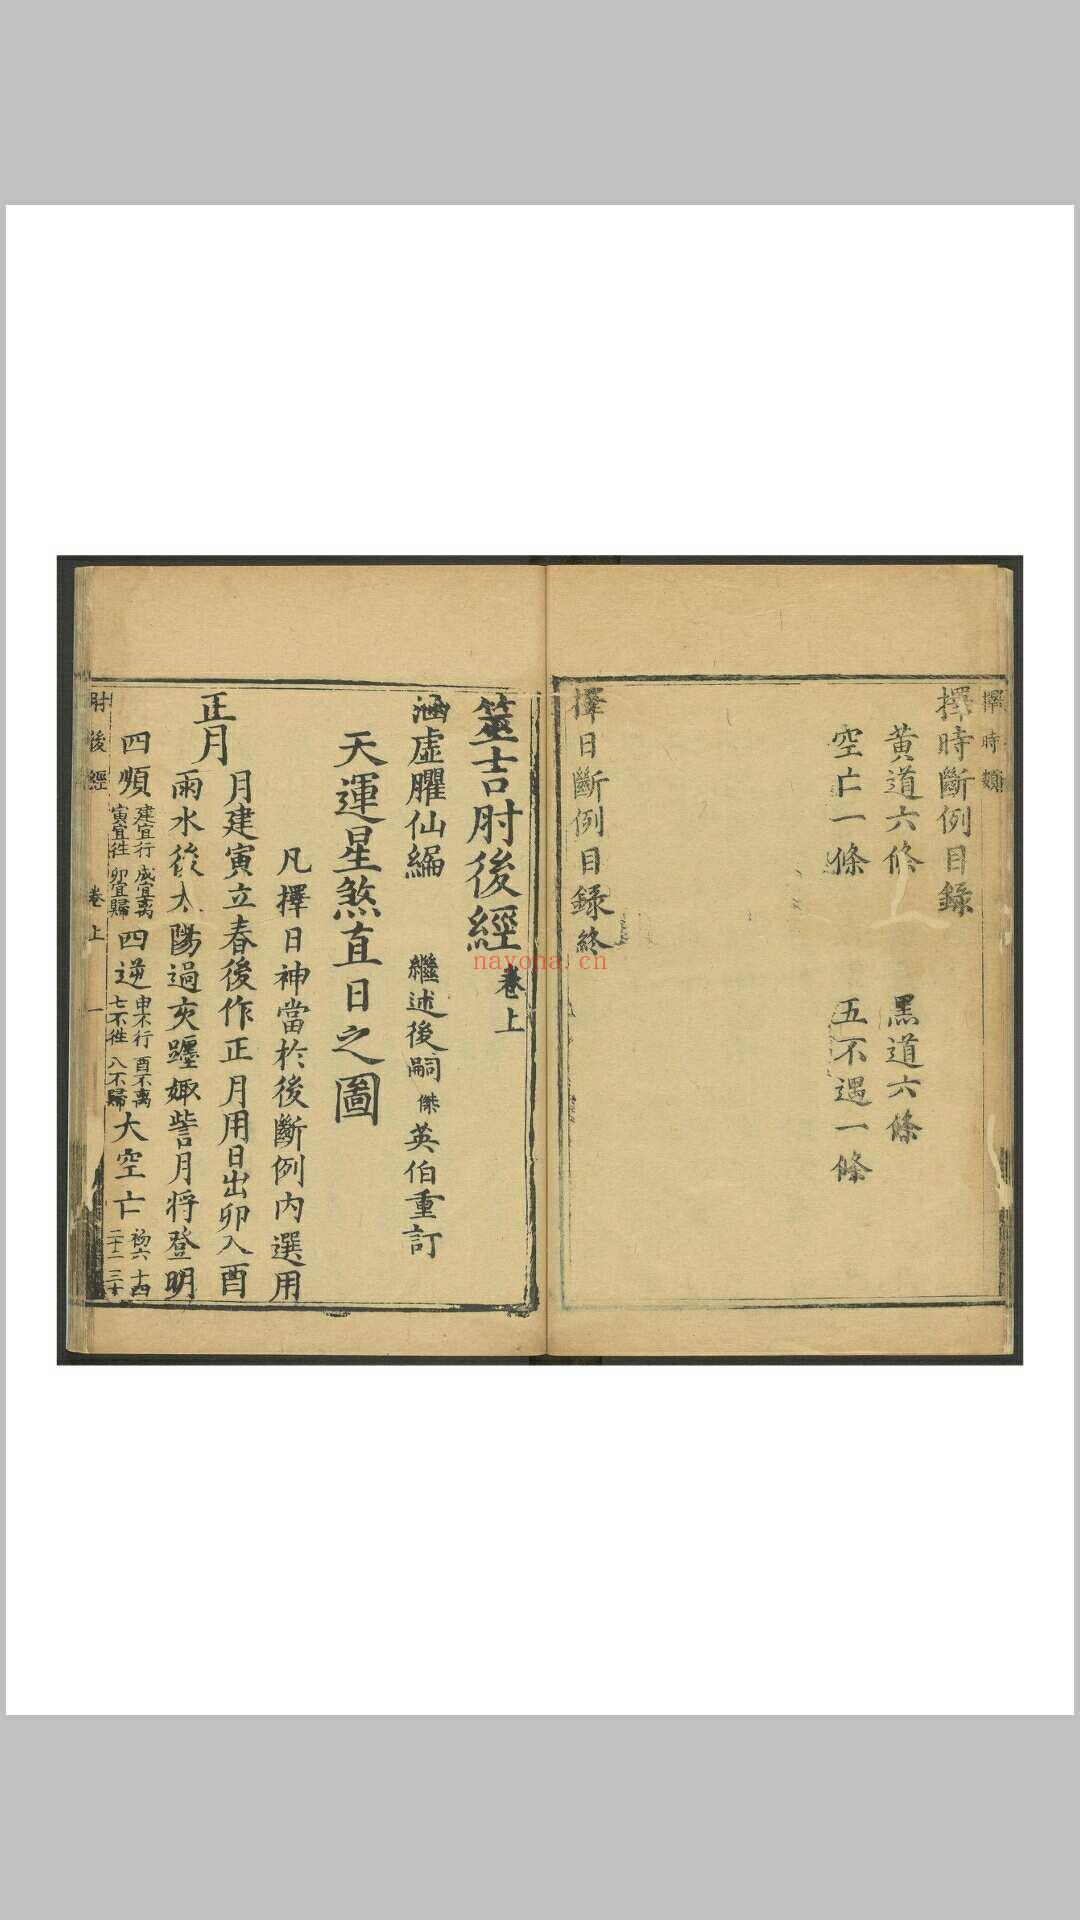 擇時類
擇時斷例目錄
黃道六條 黑道六條
空亡一條 五不遇一條
擇日斷例目錄終
筮吉肘後經卷上
涵虛臞仙編 繼述後嗣傑英伯重訂
天運星煞直日之圖
凡擇日神當於後斷例內選用
正月
月建寅立春後作正月用日出卯入酉
雨水後太陽過亥躔娵訾月將登明
四順 建宜行 成宜离 寅宜徃 卯宜歸 四逆 申不行 酉不离 七不徃 八不歸 大空亡 初六 十四 二十二 三十
肘後經 卷上 一
nayona.cn